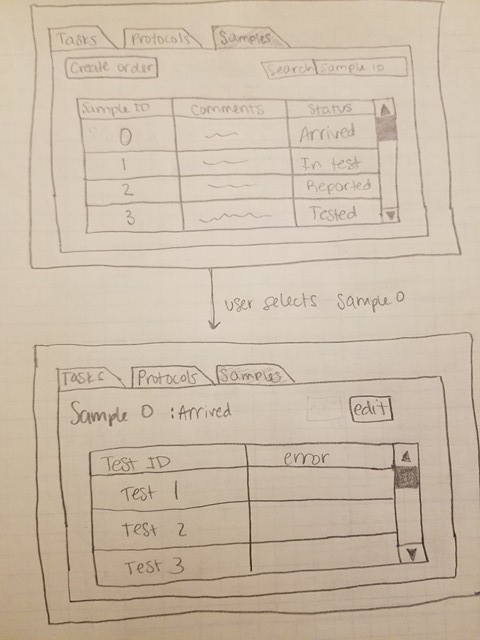 Tasks Protocols Samples
Create order Search Sample ID
Sample ID Comments Status
0 Arrived
1 In test
2 Reported
3 Tested
user selects Sample 0
Tasks Protocols Samples
Sample 0 : Arrived edit
Test ID error
Test 1
Test 2
Test 3